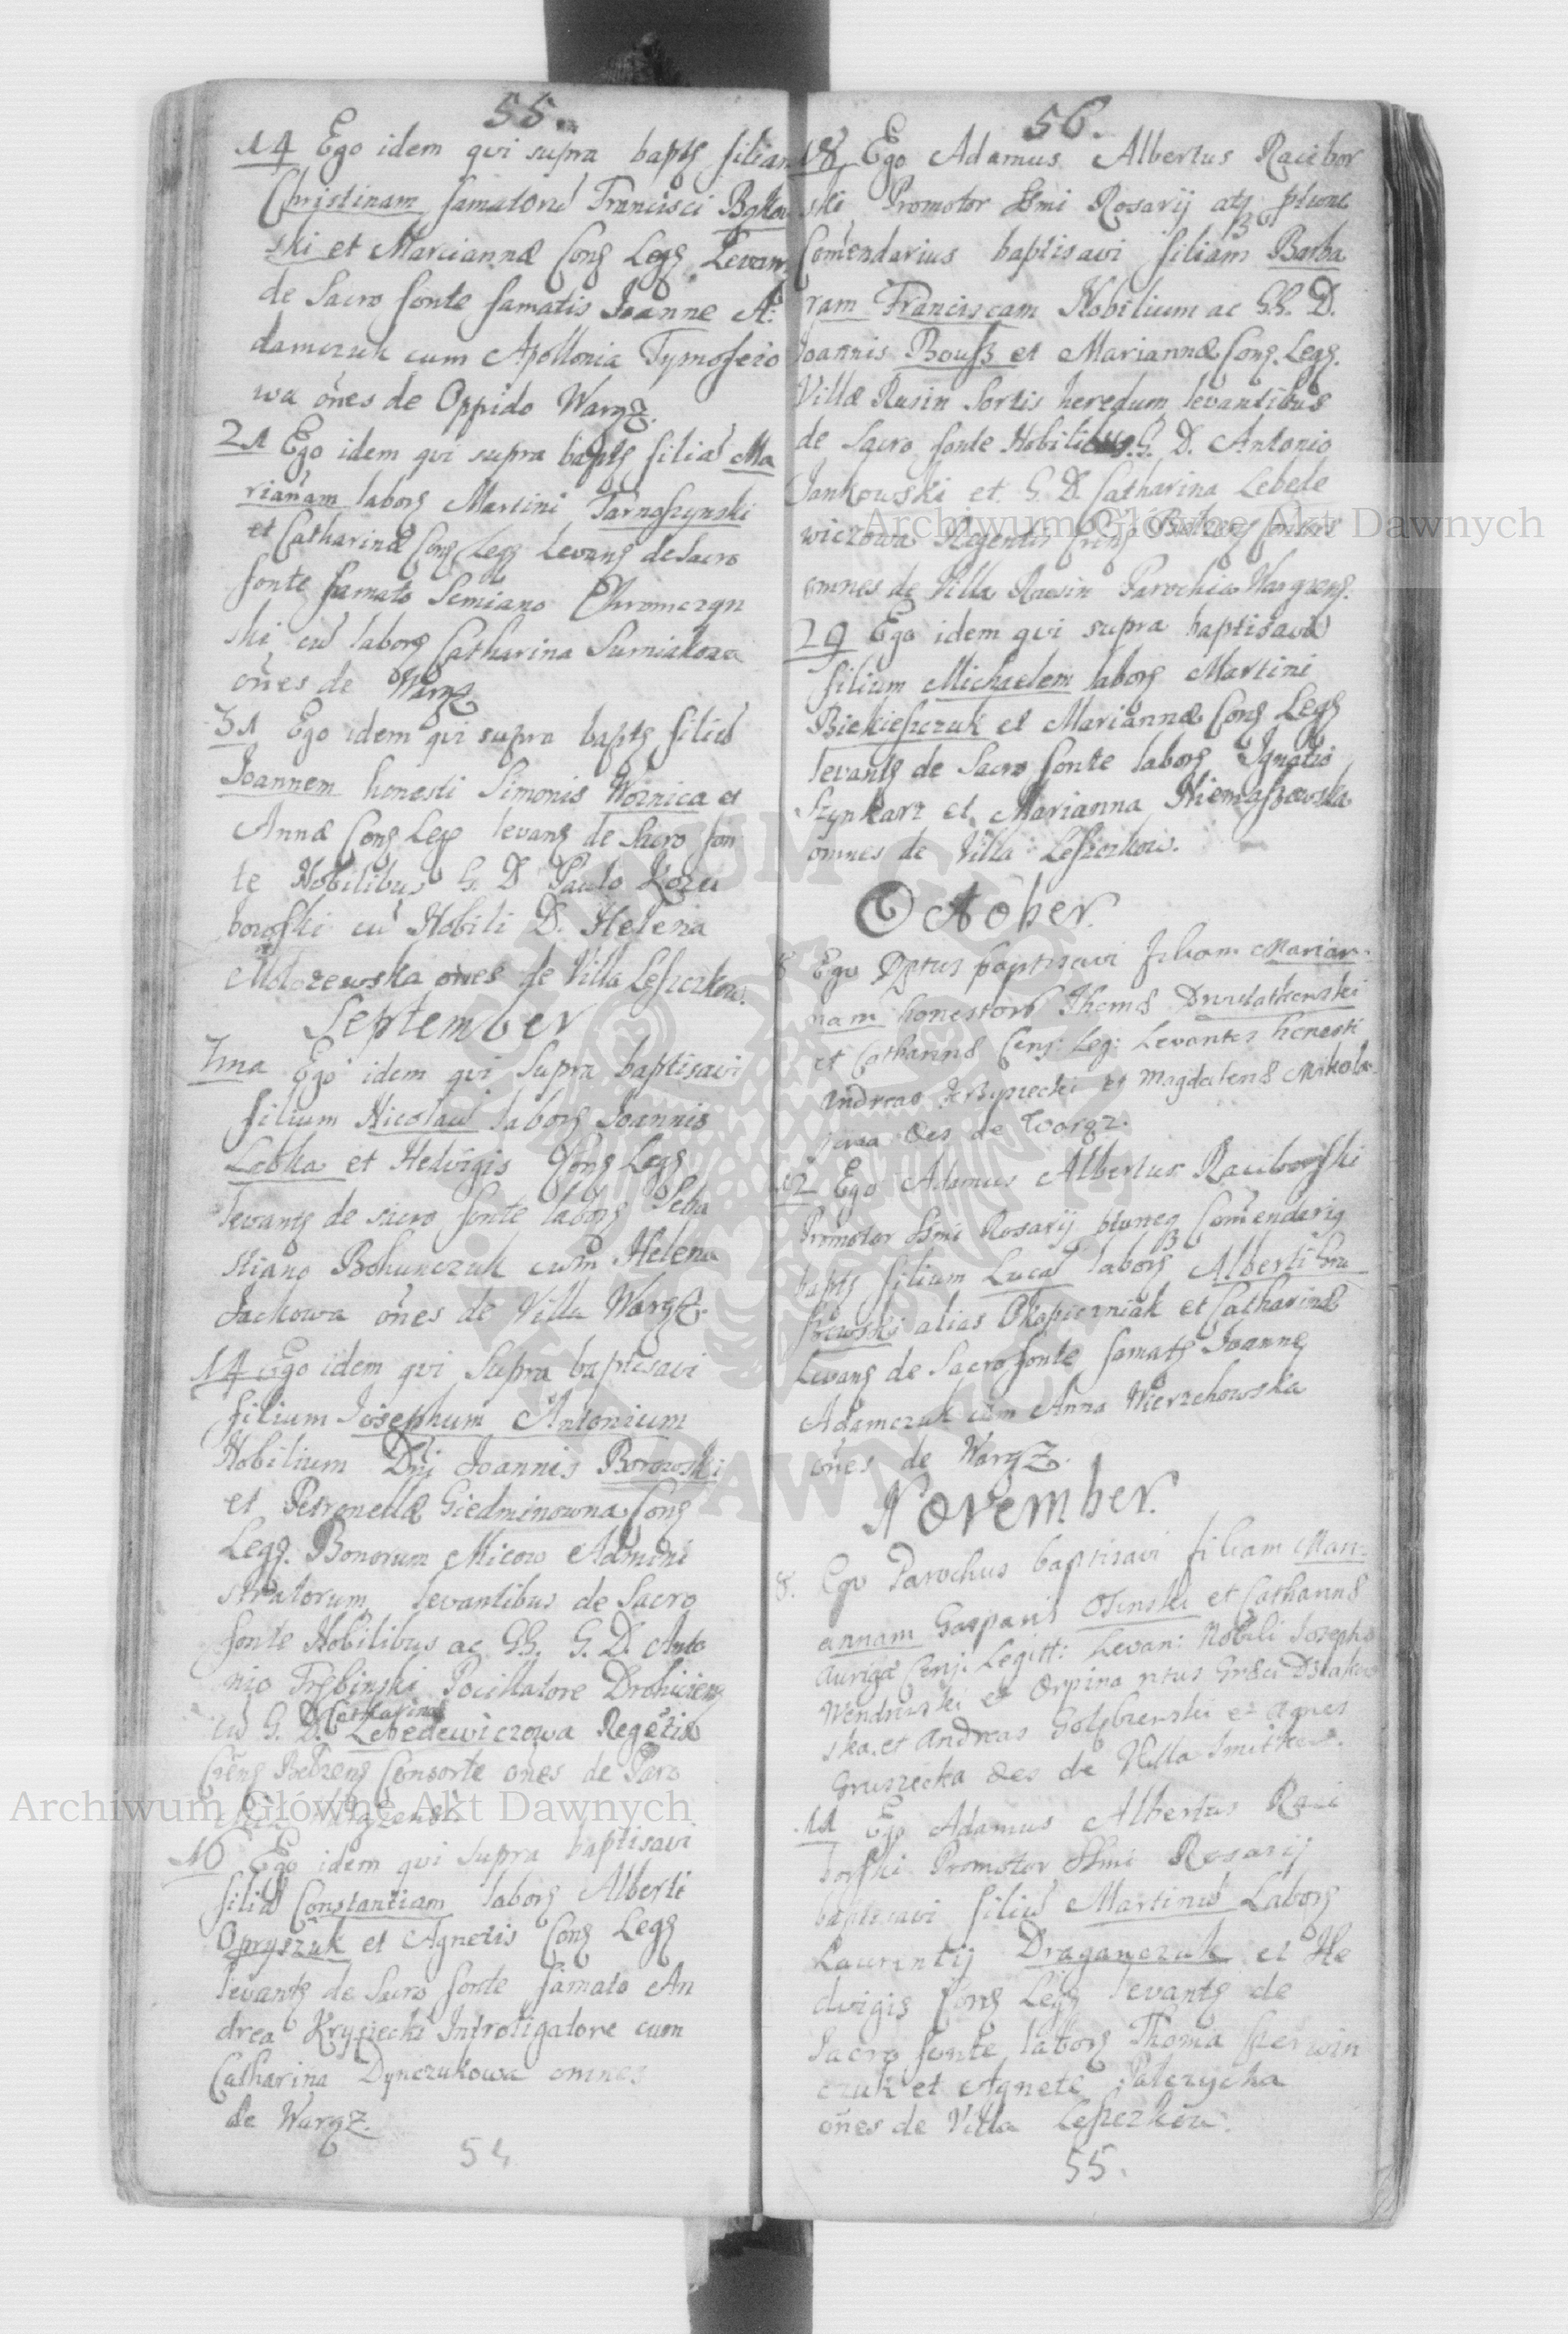 55.
14 Ego idem qvi supra baptz filiam
Christinam famatorũ Francisci Bykow
ski et Mariannæ Conz Legz Levan
de Sacro fonte famatis Ioanne A:
damczuk cum Apollonia Tymofeio
wa oñes de Oppido Waręz.
21 Ego idem qvi supra baptz filiã Ma
riañam laborz Martini Tarnaszynski
et Catharinæ Conz Legz Levanz de Sacro
fonte famato Semiano Chromczyn
ski cũ laborz Catharina Surniakowa
oñes de Waręz
31 Ego idem qvi supra baptz filiũ
Ioannem honesti Simonis Woznica et
Annæ Conz Legz levanz de Sacro fon
te Nobilibus G. D. Paulo Kozu
borofski cũ Nobili D. Helena
Motozewska oñes de Villa Leszczkow.
September
7ma Ego idem qvi Supra baptisavi
filium Nicolaũ laborz Joannis
Lebka et Helvigis Conz Legz
levantz de sacro fonte laborz Seba
stiano Bohunczuk cum Helena
Jackowa oñes de Villa Waręz.
14 Ego idem qvi Supra baptisavi
filium Josephum Antonium
Nobilium Dñi Joannis Borowski
et Petronellæ Giedminowna Conz
Legz. Bonorum Micow Admini
stratorum levantibus de Sacro
fonte Nobilibus ac GG. G. D. Anto
nio Trębinski Pocillatore Drohicienz
cũ G. D. Catharina Lebedewiczowa Regẽtis
Crẽnz Bełzenz Consorte oñes de Paro
chia Waręzensi
16 Ego idem qvi Supra baptisavi
filiã Constantiam laborz Alberti
Opryszuk et Agnetis Conz Legz
levantz de Sacro fonte famato An
drea Krysiecki Introligatore cum
Catharina Dynczukowa omnes
de Waręz.
54
56.
18 Ego Adamus Albertus Racibor
ski Promotor SSmi Rosarij atq ptunc
Comendarius baptisavi filiam Barba
ram Franciscam Nobilium ac GG. D.
Joannis Bouffz et Mariannæ Conz. Legz.
Villæ Rusin Sortis heredum levantibus
de Sacro fonte Nobilibus G. D. Antonio
Jankowski et G. D. Catharina Lebede
wiczowa Regentis Crenz Bełzenz Consors
omnes de Villa Rusin Parochiæ Waręzens.
29 Ego idem qvi supra baptisavi
filium Michaelem laborz Martini
Biekieszczuk et Mariannæ Conz Legz
levantz de Sacro fonte laborz Ignatio
Szynkarz et Marianna Niemaszewska
omnes de Villa Leszczkow.
October.
8 Ego Pptus baptisavi filiam Marian-
nam honestorũ Thomæ
et Catharinæ Conj: Leg: Levantes honesti
Andreas Krzysiecki et Magdalenæ Mikola-
jowa oes de Waręz.
12 Ego Adamus Albertus Raciborfski
Promotor SSmi Rosarij ptuncq Comendariq
baptz filium Lucã laborz Alberti Gru
szewski alias Okopiczniak et Catharinæ
Levanz de Sacro fonte famatz Joanne
Adamczuk cum Anna Wierzchowska
oñes de Waręz.
November.
8. Ego Parochus baptisavi filiam Mari-
annam Gasparis Osinski et Catharinæ
Aurigæ Conj: Legitt: Levan: Nobili Josepho
Wendrowski et
ska. et Andreas Gołębiewski et Agnes
Gruszecka oes de Villa Smitkow.
11 Ego Adamus Albertus Raci
borfski Promotor SSmi Rosarij
baptisavi filiũ Martinũ Laborz
Laurentij Draganczuk et He
dvigis Conz Legz levantz de
Sacro fonte laborz Thoma Szerwin
czuk et Agnete Palczycha
oñes de Villa Leszczkow.
55.
Archiwum Główne Akt Dawnych
Archiwum Główne Akt Dawnych